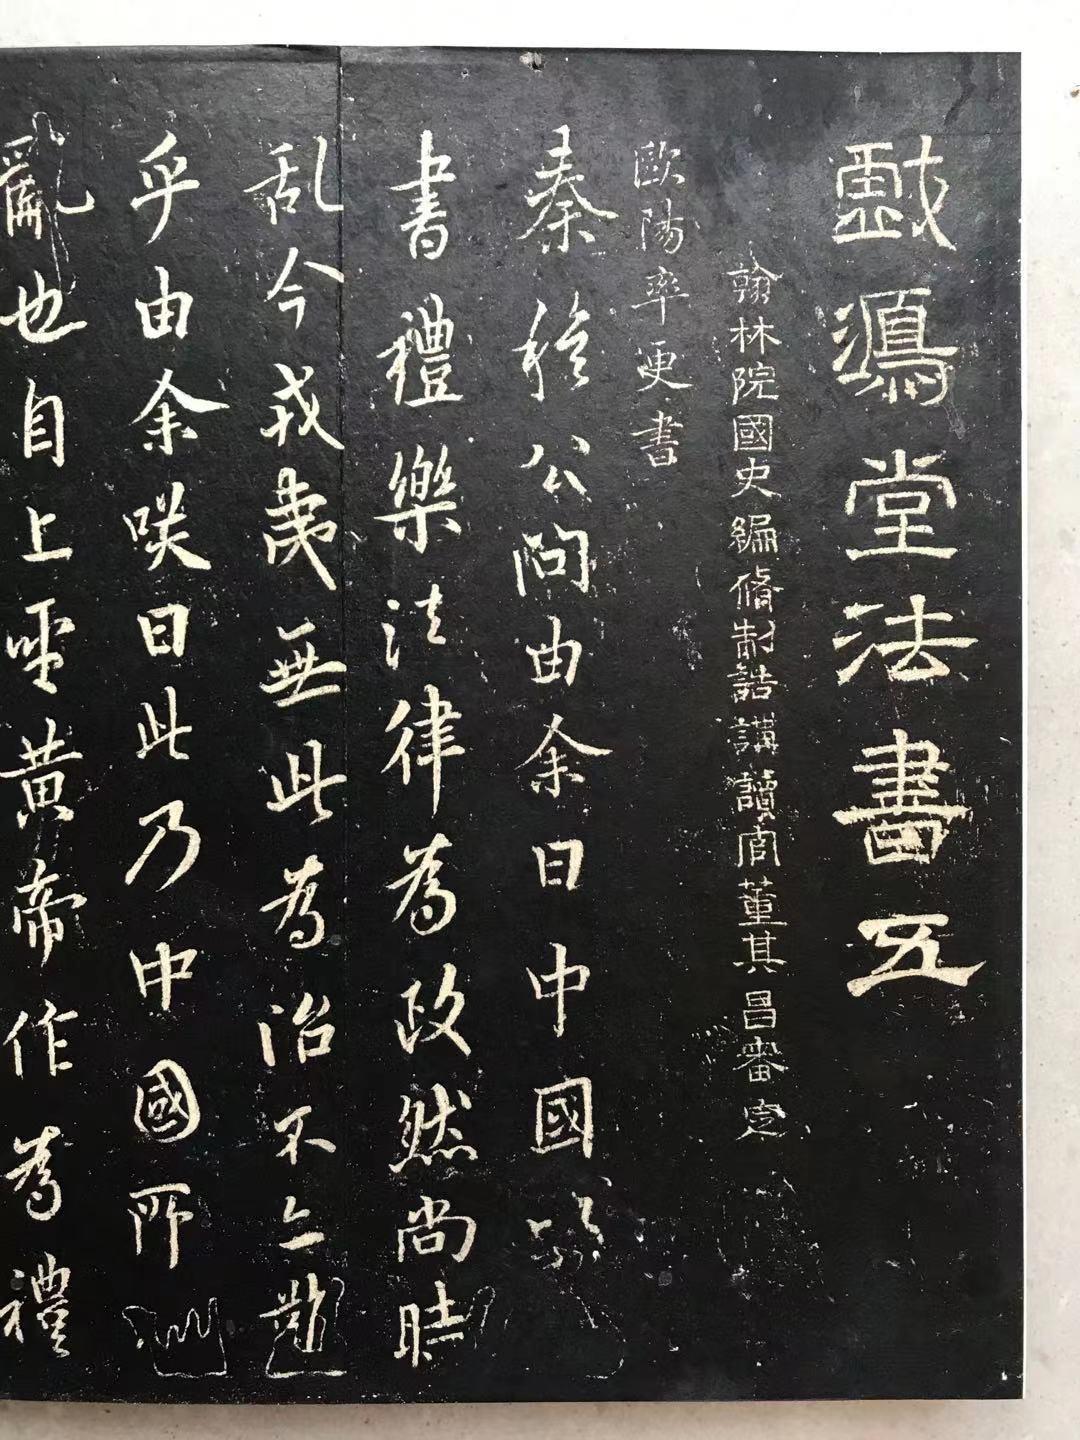 戱鴻堂法書五
翰林院國史編脩制誥講讀官董其昌審定
歐陽率更書
秦穆公問由余曰中國以
書禮樂法律為政然尚時
乱今戎夷無此為治不亦難
乎由余咲曰此乃中國所
亂也自上聖黃帝作為禮